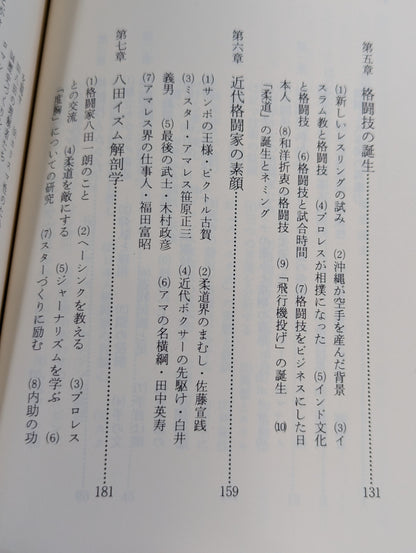 第五章　格闘技の誕生……………………131
⑴新しいレスリングの試み　⑵沖縄が空手を産んだ背景　⑶イ
スラム教と格闘技　⑷プロレスが相撲になった　⑸インド文化
と格闘技　⑹格闘技と試合時間　⑺格闘技をビジネスにした日
本人　⑻和洋折衷の格闘技　⑼「飛行機投げ」の誕生　⑽
「柔道」の誕生とネミング
第六章　近代格闘家の素顔……………………159
⑴サンボの王様・ビクトル古賀　⑵柔道界のまむし・佐藤宣践
⑶ミスター・アマレス笹原正三　⑷近代ボクサーの先駆け・白井
義男　⑸最後の武士・木村政彦　⑹アマの名横綱・田中英寿
⑺アマレス界の仕事人・福田富昭
第七章　八田イズム解剖学……………………181
⑴格闘家八田一朗のこと　⑵ヘーシンクを教える　⑶プロレス
との交流　⑷柔道を敵にする　⑸ジャーナリズムを学ぶ　⑹
についての研究　⑺スターづくりに励む　⑻内助の功